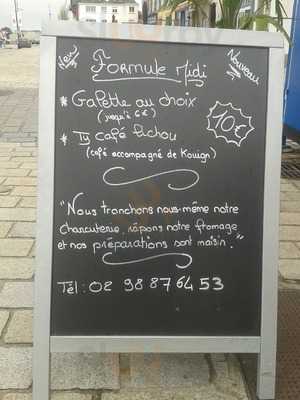 New
Nouveau
Formule midi
* Galette au choix
(jusqu'à 6€)
10€
* Ty café Pichou
(café accompagné de Kouign)
"Nous tranchons nous-même notre
charcuterie, râpons notre fromage
et nos préparations sont maison."
Tél : 02 98 87 64 53